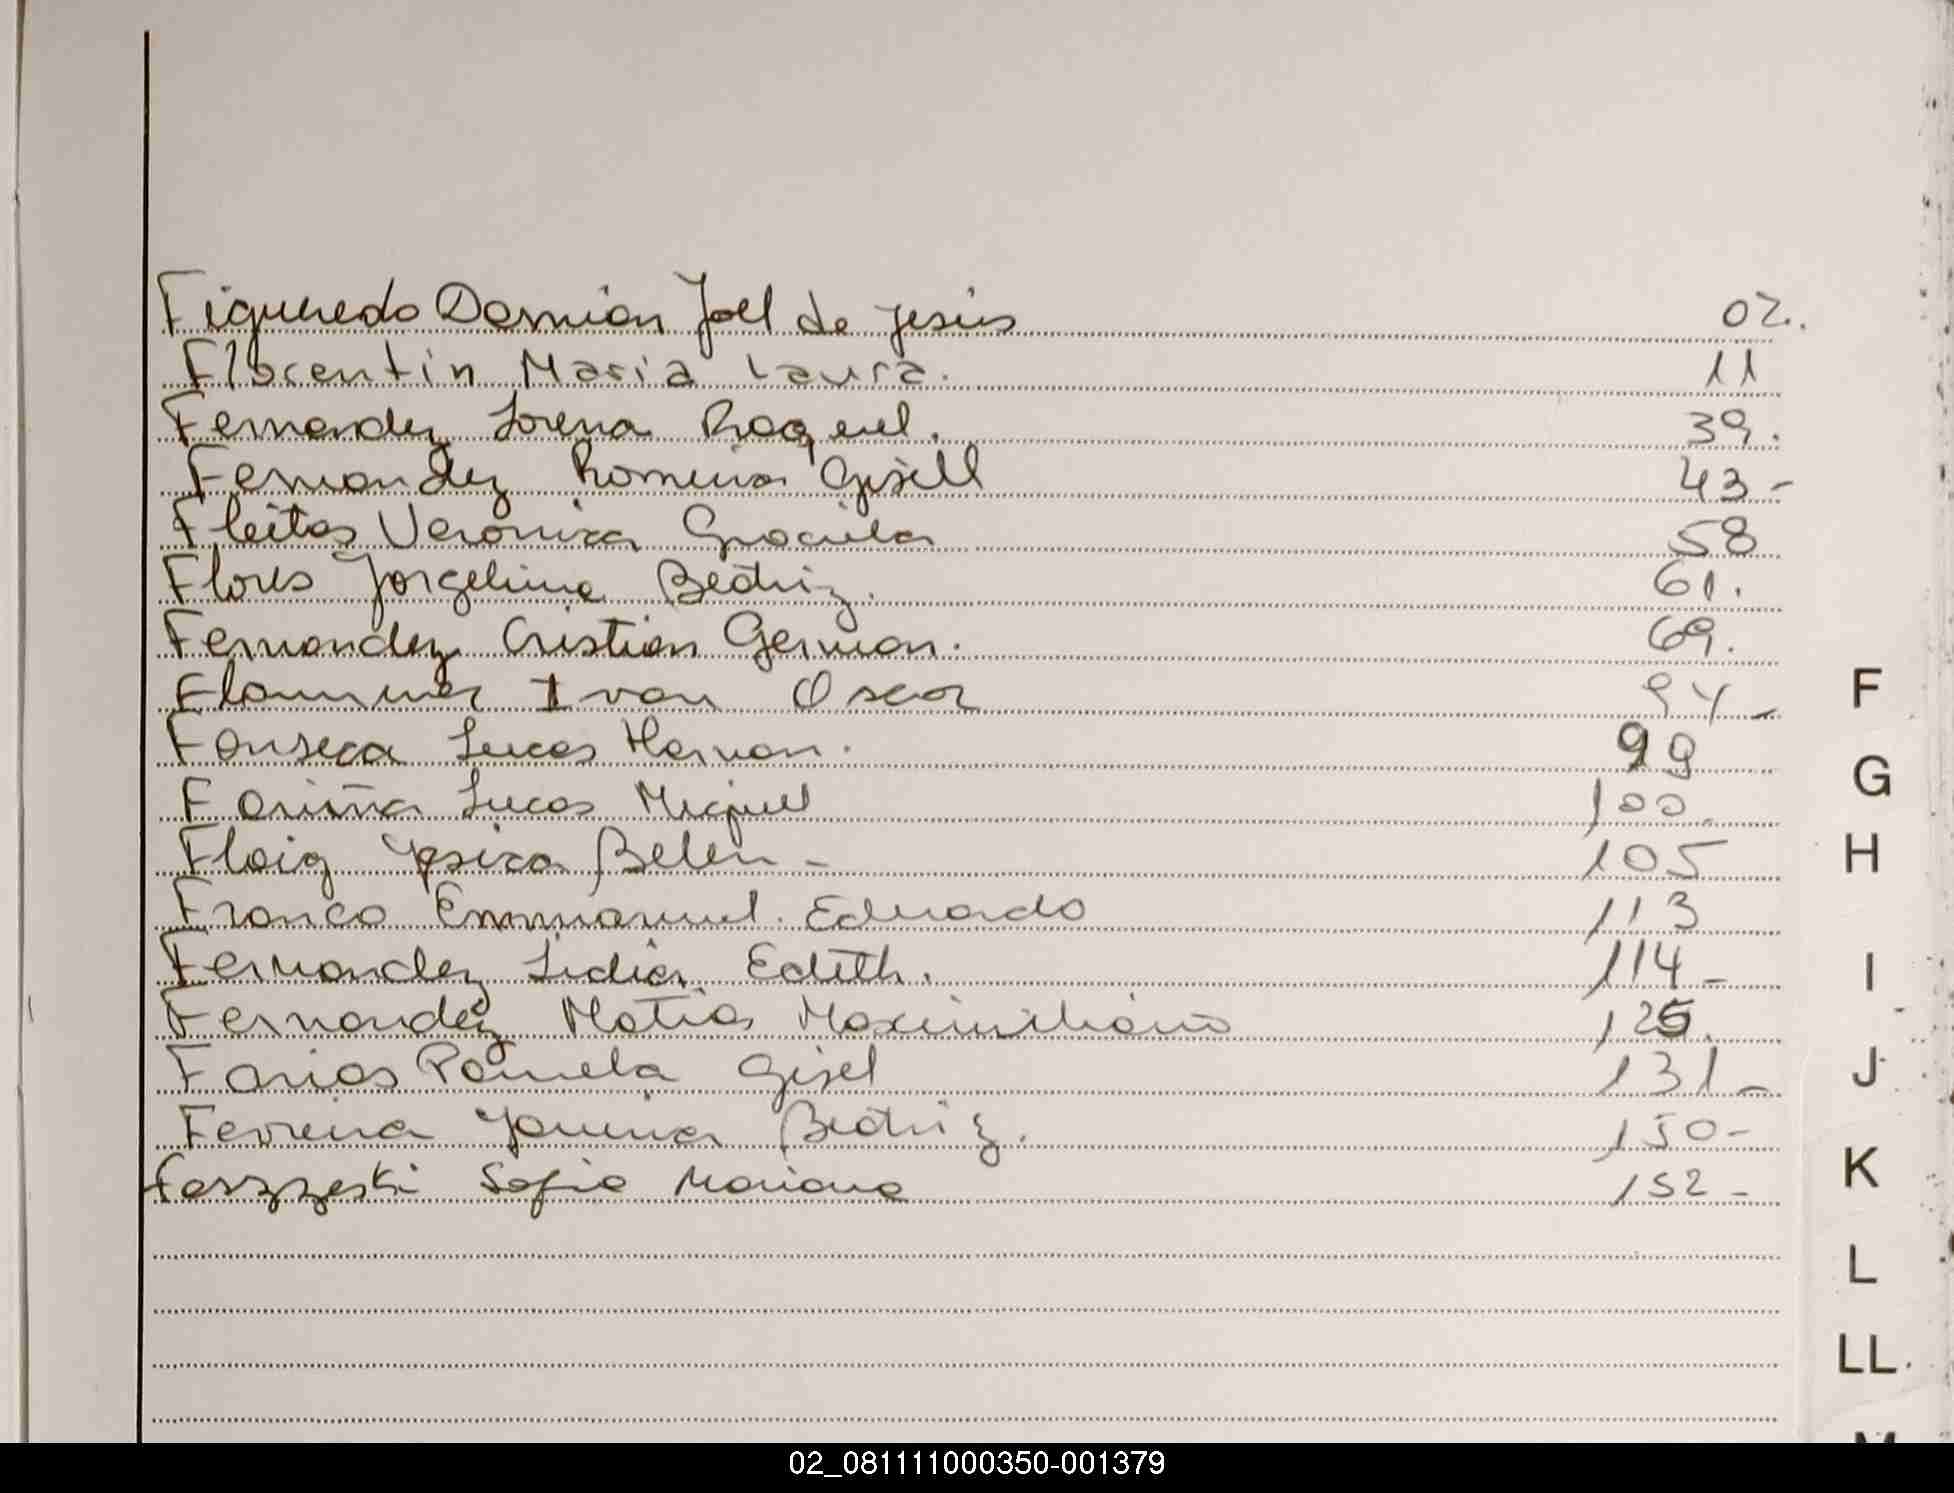 Figueredo Damian Joel de Jesús 02.
Florentin Maria Laura. 11
Fernandez Lorena Raquel. 39.
Fernandez Romina Gisell 43-
Fleitas Veronica Graciela 58
Flores Jorgelina Beatriz. 61.
Fernandez Cristian German. 69.
Flammer Ivan Oscar 94-
Fonseca Lucas Hernan. 99
Fariña Lucas Miguel 100.
Floig Yesica Belen- 105
Franco Emmanuel. Eduardo 113
Fernandez Lidia Edith. 114-
Fernandez Matias Maximiliano 126.
Farias Pamela Gisel 131-
Ferreira Yanina Beatriz. 150-
Sofia Mariana 152-
F
G
H
I
J
K
L
LL
02_081111000350-001379